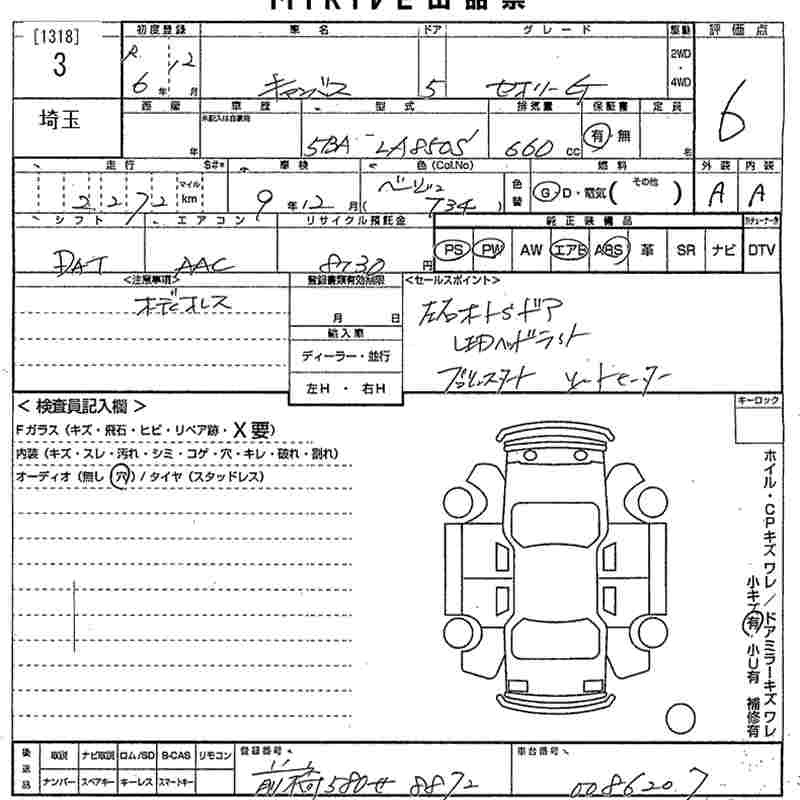 MIRIVE出品票
[1318] 初度登録 車名 ドア グレード 駆動 評価点
3 R. 6年 12月 キャンバス 5 セオリーG 2WD・4WD 6
埼玉 西暦 年 車歴 未記入は自家用 型式 排気量 保証書 定員
5BA-LA850S 660cc 有・無 名
走行 S#* 車検 色(Col.No) 燃料 外装 内装
2272 マイル km 9年12月 ベージュ (734) 色替 G・D・電気(その他) A A
シフト エアコン リサイクル預託金 純正装備品
DAT AAC 8730円 PS PW AW エアB ABS 革 SR ナビ DTV
<注意事項> 登録書類有効期限 <セールスポイント>
オーディオレス 月 日 左右オートSドア
輸入車 LEDヘッドライト
ディーラー・並行 プッシュスタート シートヒーター
左H・右H
<検査員記入欄> キーロック
Fガラス(キズ・飛石・ヒビ・リペア跡・X要)
内装(キズ・スレ・汚れ・シミ・コゲ・穴・キレ・破れ・割れ)
オーディオ(無し 穴)/タイヤ(スタッドレス)
ホイル・CPキズ ワレ/ドアミラーキズ ワレ
小キズ有 小U有 補修有
後送品 取説 ナビ取説 ロム/SD B-CAS リモコン 登録番号 車台番号
ナンバー スペアキー キーレス スマートキー 前橋580せ8872 0086207